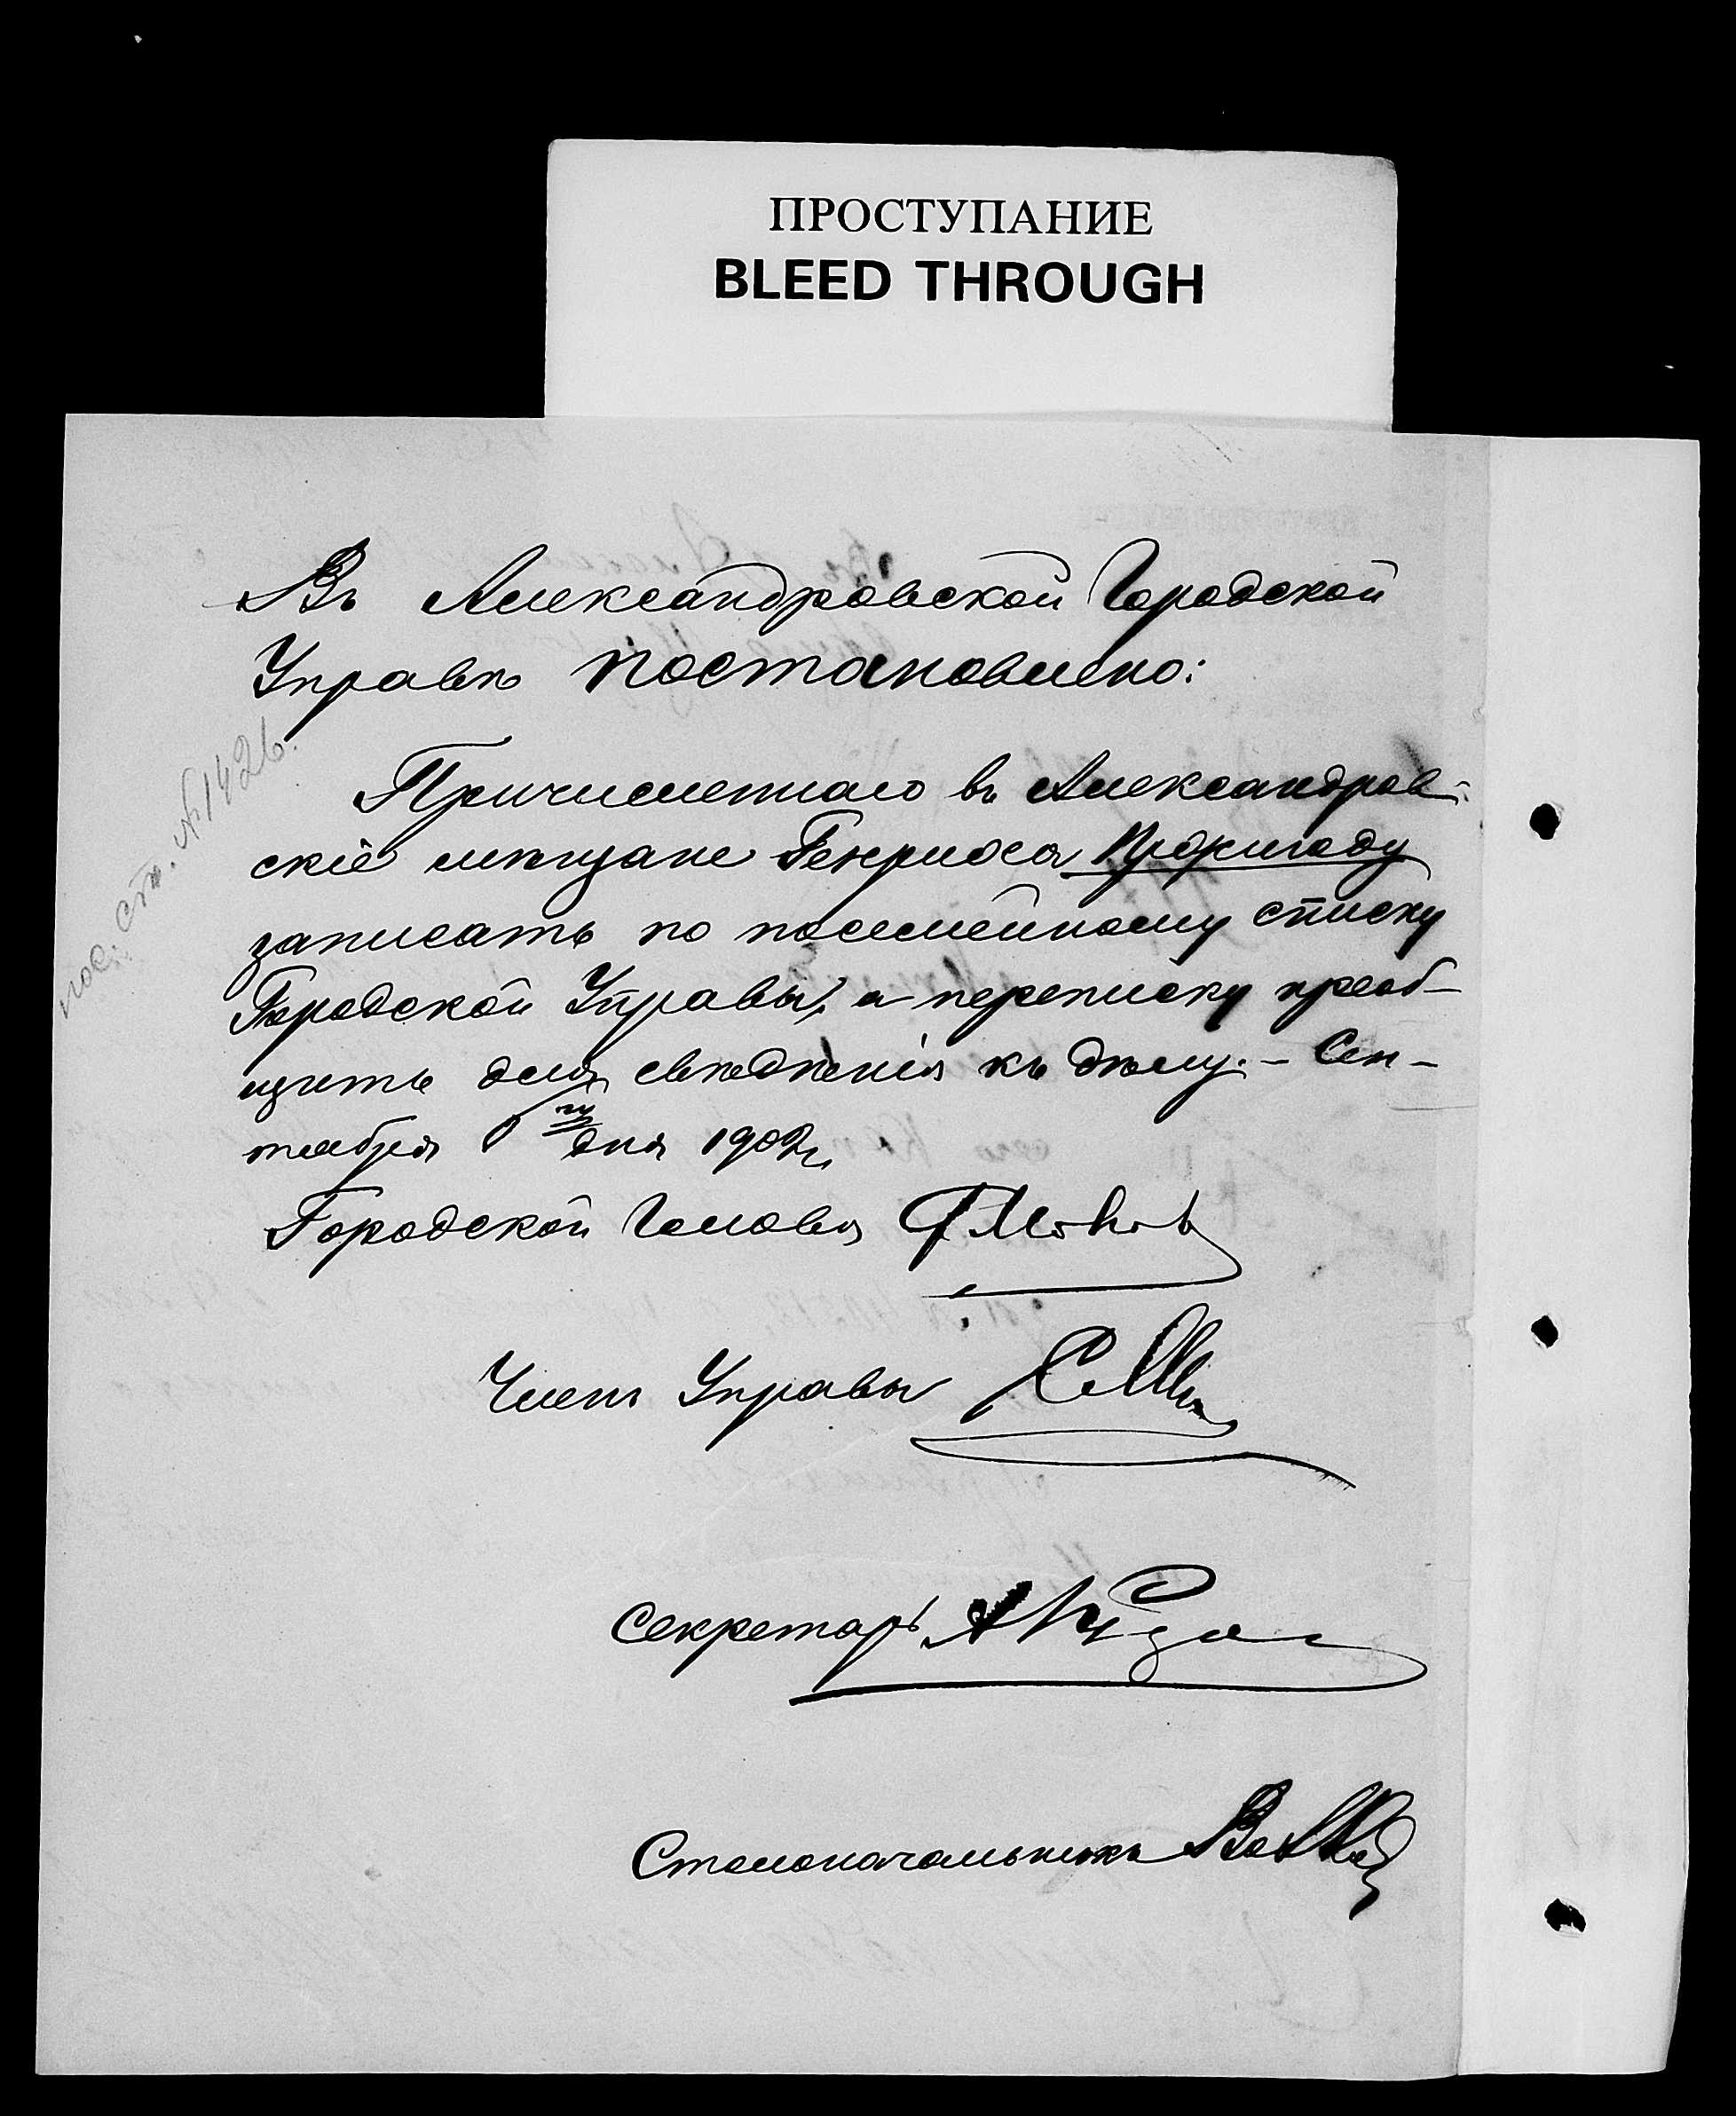 ПРОСТУПАНИЕ
BLEED THROUGH
Въ Александровской Городской
Управѣ постановлено:
пос. сп. № 1426.
Причисленнаго въ Александров-
скіе мѣщане Генриха
записать по посемейному списку
Городской Управы, а переписку преоб-
щить для свѣдѣнія къ дѣлу. – Сен-
тября дня 1902 г.
Городской Голова
Членъ Управы
Секретарь
Столоначальникъ